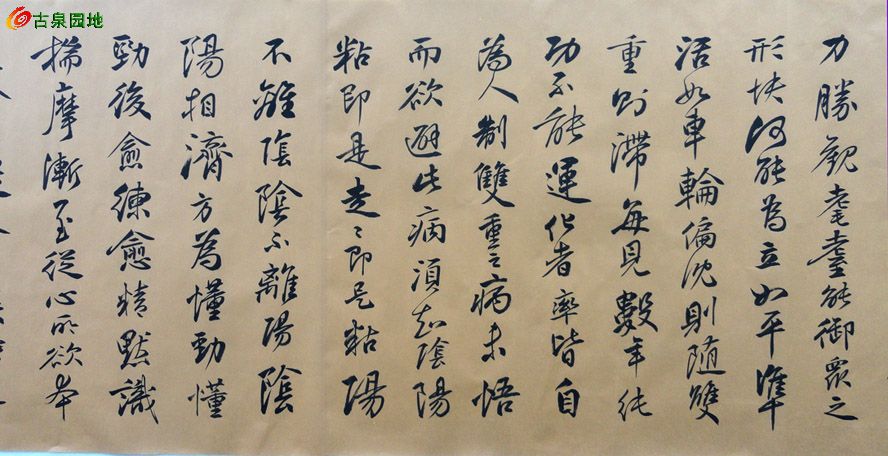 古泉园地
力勝觀耄耋能御眾之
形快何能為立如平準
活如車輪偏沈則隨雙
重則滯每見數年純
功不能運化者率皆自
為人制雙重之病未悟
而欲避此病須知陰陽
粘即是走々即是粘陽
不離陰陰不離陽陰
陽相濟方為懂勁懂
勁後愈練愈精默識
揣摩漸至從心所欲本